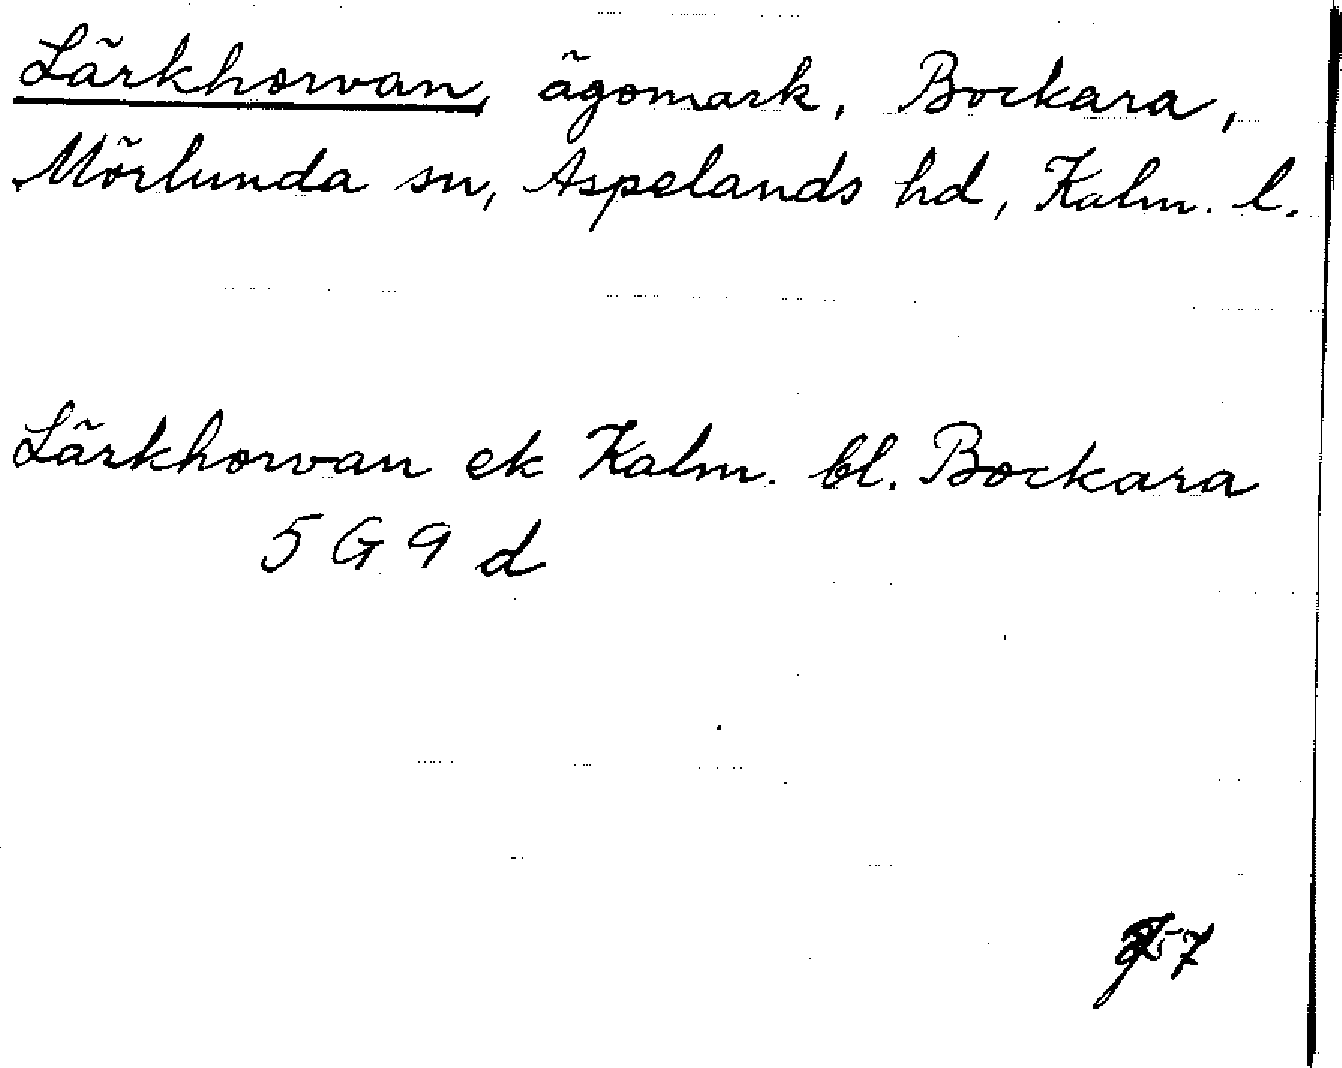 Lärkhorvan, ägomark, Bockara,
Mörlunda sn, Aspelands hd, Kalm. l.
Lärkhorvan ek Kalm. bl. Bockara
5 G 9 d